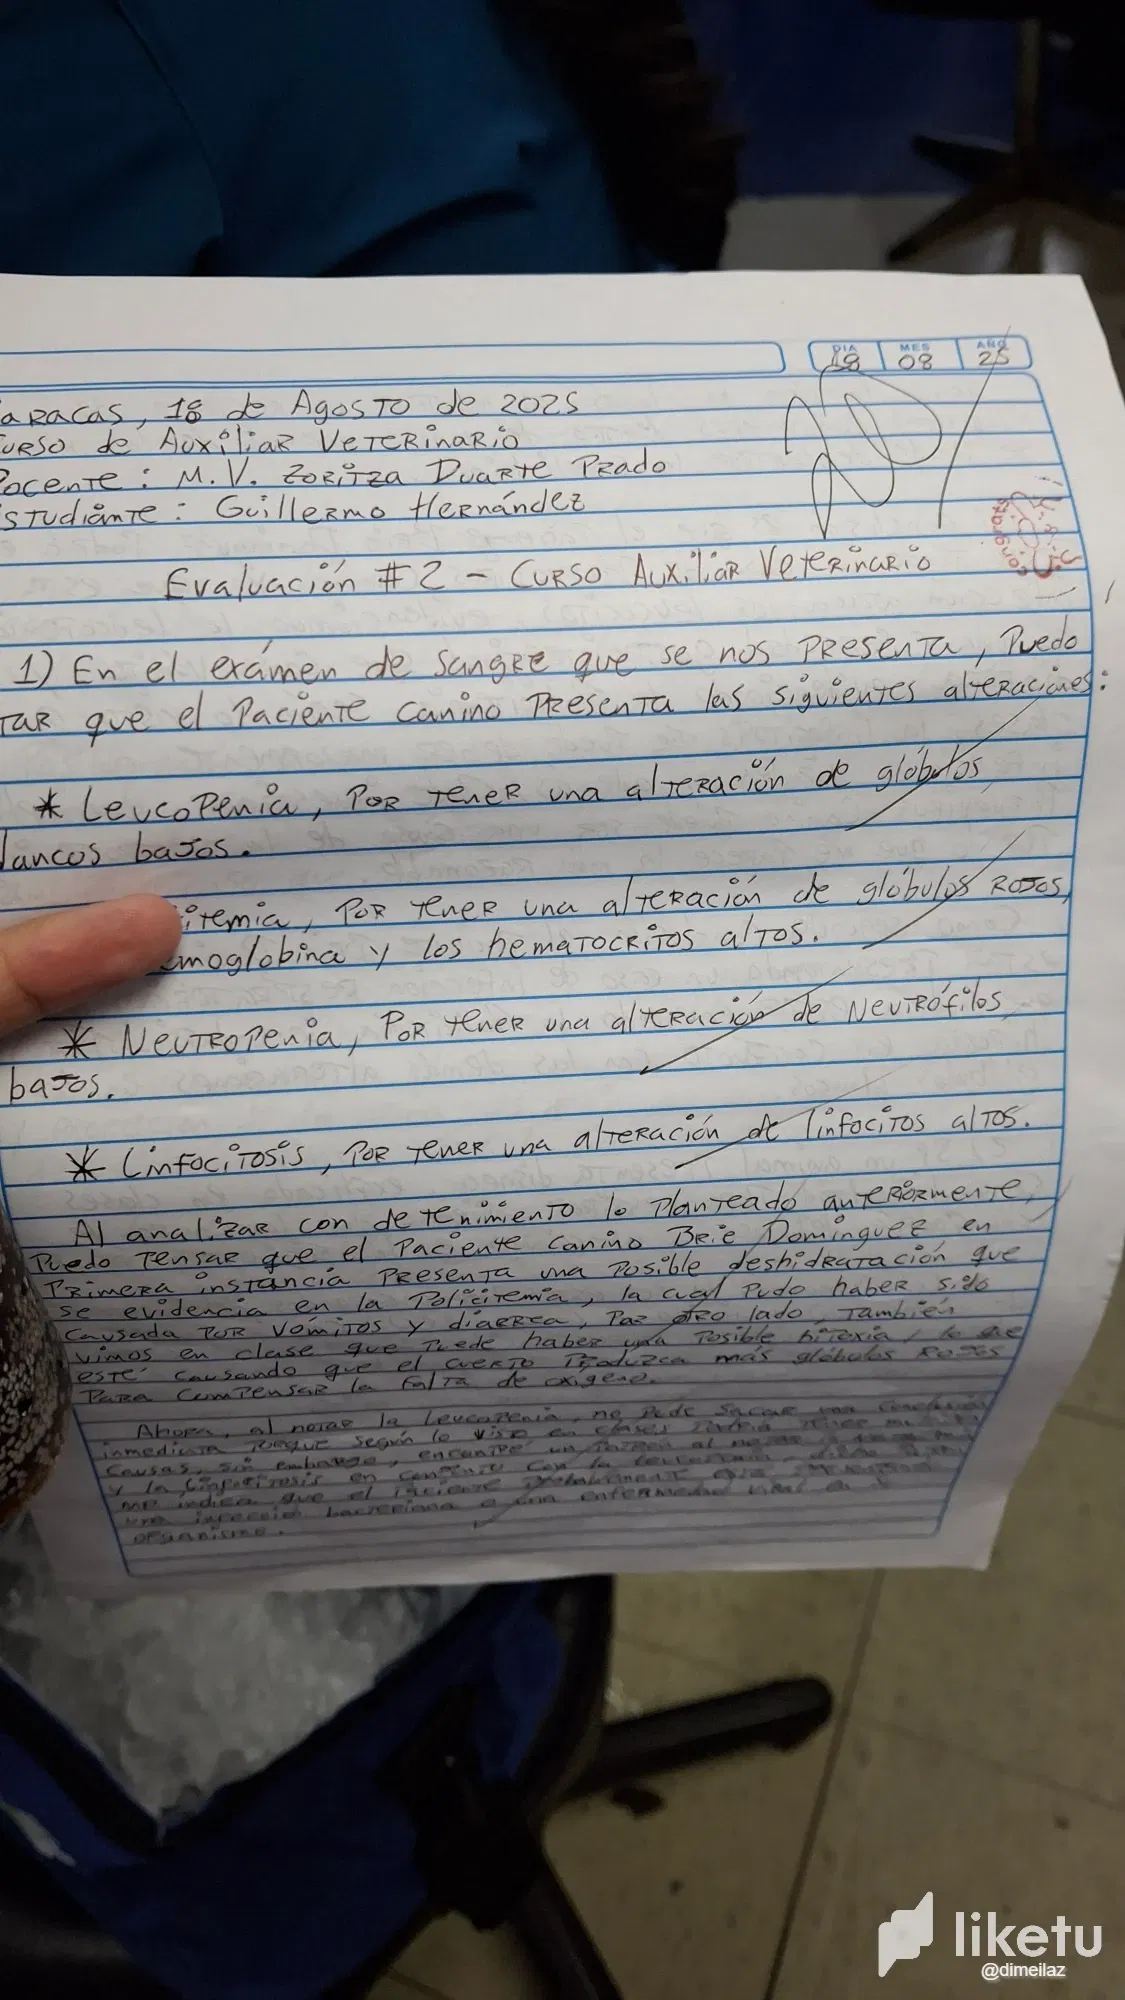 DIA MES AÑO
18 08 25
aracas, 18 de Agosto de 2025
urso de Auxiliar Veterinario
ocente: M. V. Zoritza Duarte Prado
studiante: Guillermo Hernández
Evaluación #2 - Curso Auxiliar Veterinario
congrats
1) En el exámen de sangre que se nos presenta, puedo
tar que el paciente canino presenta las siguientes alteraciones:
* Leucopenia, por tener una alteración de glóbulos
lancos bajos.
itemia, por tener una alteración de glóbulos rojos,
emoglobina y los hematocritos altos.
* Neutropenia, por tener una alteración de Neutrófilos
bajos.
* Linfocitosis, por tener una alteración de linfocitos altos.
Al analizar con detenimiento lo planteado anteriormente,
Puedo pensar que el paciente canino Brie Dominguez, en
primera instancia presenta una posible deshidratación que
se evidencia en la policitemia, la cual pudo haber sido
causada por vómitos y diarrea, Por otro lado, también
vimos en clase que puede haber una posible hipoxia, lo que
esté causando que el cuerpo produzca más glóbulos rojos
para compensar la falta de oxígeno.
Ahora, al notar la leucopenia, no pude sacar una conclusión
inmediata porque según lo visto en clases podría tener
causas, sin embargo, encontré un patrón al notar
y la linfocitosis en conjunto con la leucopenia,
me indica que el paciente probablemente
una infección bacteriana o una enfermedad viral
organismo.
liketu
@dimeilaz